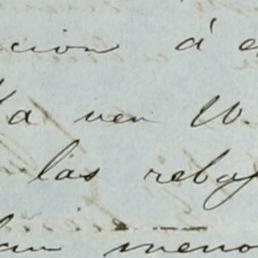 cion á e
a ven W.
las rebaj
an meno